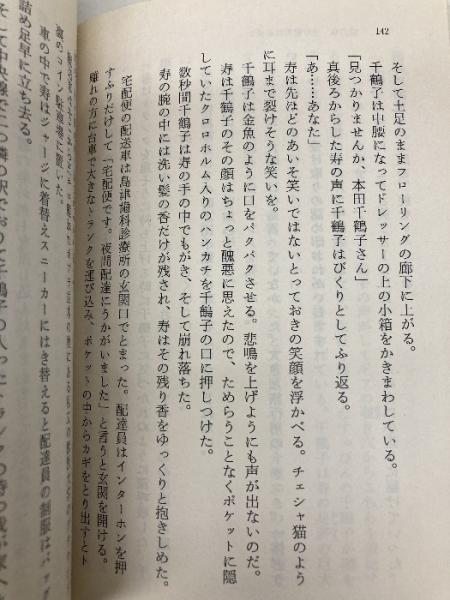 142
そして土足のままフローリングの廊下に上がる。
千鶴子は中腰になってドレッサーの上の小箱をかきまわしている。
「見つかりませんか、本田千鶴子さん」
真後ろからした寿の声に千鶴子はびくりとしてふり返る。
「あ……あなた」
寿は先ほどのあいそ笑いではないとっておきの笑顔を浮かべる。チェシャ猫のよう
に耳まで裂けそうな笑いを。
千鶴子は金魚のように口をパクパクさせる。悲鳴を上げようにも声が出ないのだ。
寿は千鶴子のその顔はちょっと醜悪に思えたので、ためらうことなくポケットに隠
していたクロロホルム入りのハンカチを千鶴子の口に押しつけた。
数秒間千鶴子は寿の手の中でもがき、そして崩れ落ちた。
寿の腕の中には洗い髪の香だけが残され、寿はその残り香をゆっくりと抱きしめた。
宅配便の配送車は島津歯科診療所の玄関口でとまった。配達員はインターホンを押
すふりだけして「宅配便です。夜間配達にうかがいました」と言うと玄関を開ける。
離れの方に台車で大きなトランクを運び込み、ポケットの中からカギをとり出すとト
のコイン駐車場に置いた。
車の中で寿はジャージに着替えスニーカーにはき替えると配達員の制服はバッグ
詰め足早に立ち去る。
そして中央線で二つ隣の駅でおりた